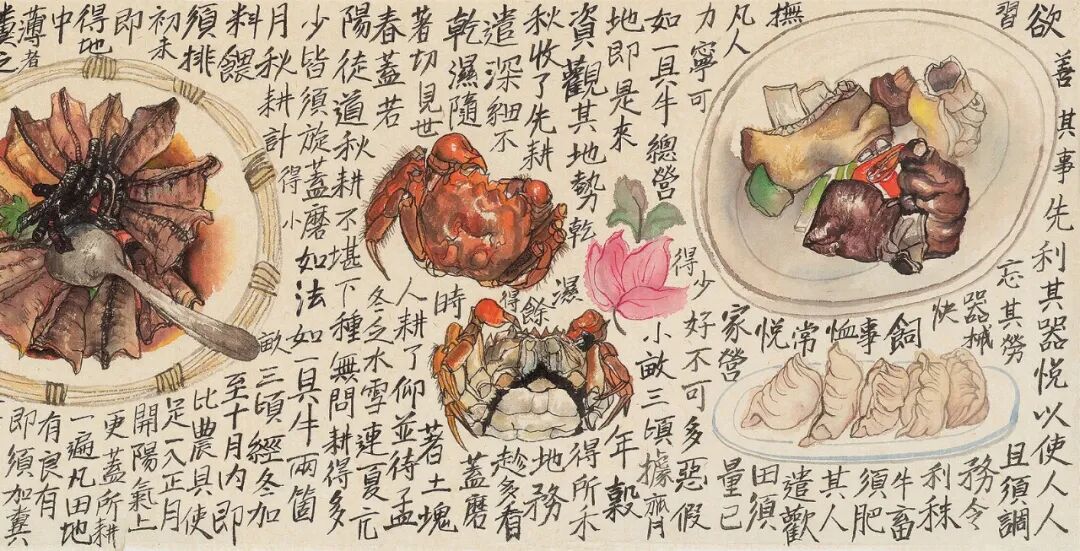 欲善其事先利其器悅以使人人
忘其勞且須調
習器械務令
快利秣
飼牛畜
事須肥
恤其人
撫常遣歡
悅
凡人家營田須
量己
力寧可得少好不可多惡假
如一具牛總營小畝三頃據齊
地即是來年穀
資觀其地勢乾濕得所禾
秋收了先耕餘地務
遣深細不得趁多看
乾濕隨時蓋磨
著切見世人耕了仰著土塊
並待孟
春蓋若冬乏水雪連夏亢
陽徒道秋耕不堪下種無問耕得多
少皆須旋蓋磨如法如一具牛兩箇
月秋耕計得小畝三頃經冬加
料餵至十月內即
須排比農具使
足一入正月
初未開陽氣上
即更蓋所耕
得地一遍凡田地
中有良有
薄者即須加糞
糞之